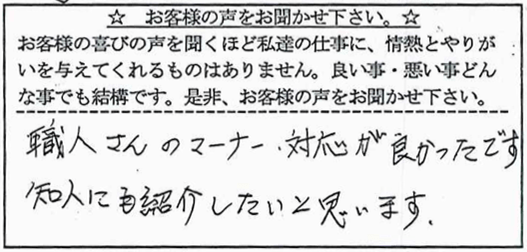 ☆ お客様の声をお聞かせ下さい。☆
お客様の喜びの声を聞くほど私達の仕事に、情熱とやりが
いを与えてくれるものはありません。良い事・悪い事どん
な事でも結構です。是非、お客様の声をお聞かせ下さい。
職人さんのマーナー、対応が良かったです
知人にも紹介したいと思います。